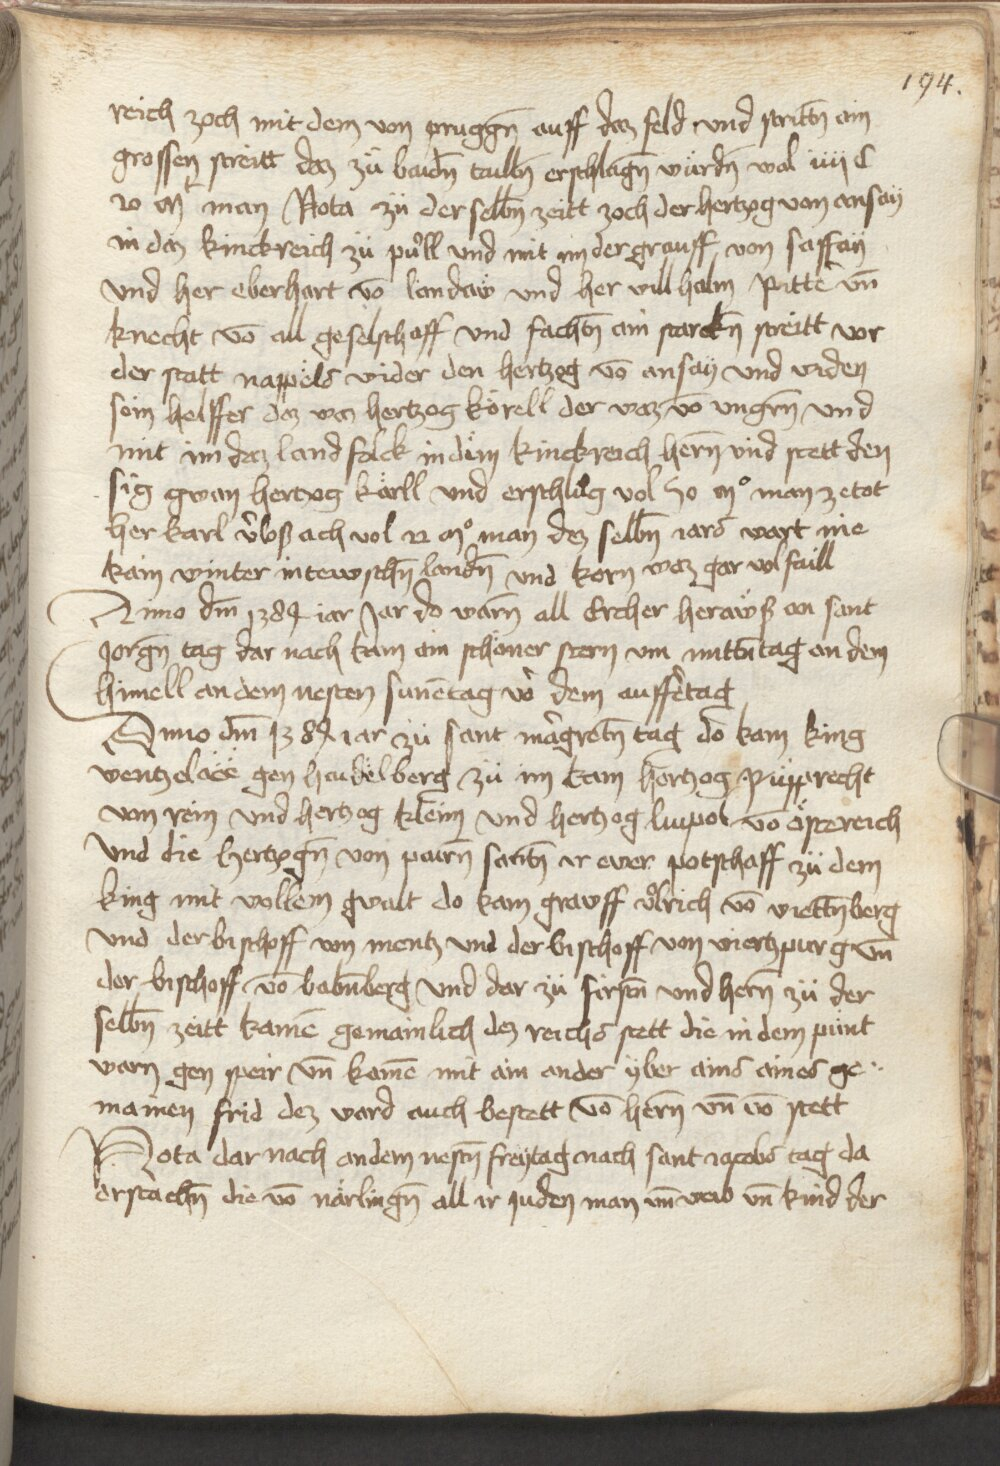 194.
reich zoch mit dem von pruggn̄ auff daz feld und stritn̄ ain
grossen streitt daz zü baidn̄ tailln̄ erschlagn̄ wurdn̄ wol iiij C
man Nota zü der selbn̄ zeitt zoch der hertzog von ansay
in daz kinckreich zü püll und mit im der grauff von saffay
und her eberhart vō landaw und her vill halm Ritte vn̄
knecht vō all geselschaff und fachtn̄ ain starckn̄ streitt vor
der statt nappels wider den hertzog vō ansay und widen
soin helffer daz waz hertzog körell der waz vō ungrn̄ und
mit im daz land folck in dem kinckreich hern̄ und stett den
sig gwan hertzog karll und erschlug vol 50 mo man ze tot
her karl v̄loß ach vol 12 mo man dez selbn̄ iars wart nie
kain winter in tewschn̄ landn̄ und korn waz gar vol faill
Anno dm̄ 1384 iar Jar do warn̄ all Ercher herawß an sant
Jorgn̄ tag dar nach kam ain schöner stern um mittn̄tag an dem
himell an dem nesten sunētag vō dem auffētag
Anno dm̄ 1384 iar zü sant màgretn̄ tag do kam king
wentzelaë gen haidelberg zü im kam hertzog Rupprecht
von rein und hertzog klem und hertzog luupolt vō österreich
und die hertzogn̄ von pairn̄ santn̄ ir erber potschaff zü dem
king mit vollem gwalt do kam grawff ůlrich vō wirttn̄berg
und der bischoff von mentz und der bischoff von wiertzpurg vn̄
der bischoff vō babn̄berg und dar zü firstn̄ und hern̄ zü der
selbn̄ zeitt kamē gemainlich dez reichs stett die in dem punt
warn gen speir vn̄ kamē mit ain ander yber ains aines ge
mainen frid dez ward auch bestett vō hern̄ vn̄ vō stett
Nota dar nach an dem nestn̄ freytag nach sant iacobs tag da
erstachn̄ die vō närlingn̄ all ir juden man vn̄ weib vn̄ kind der